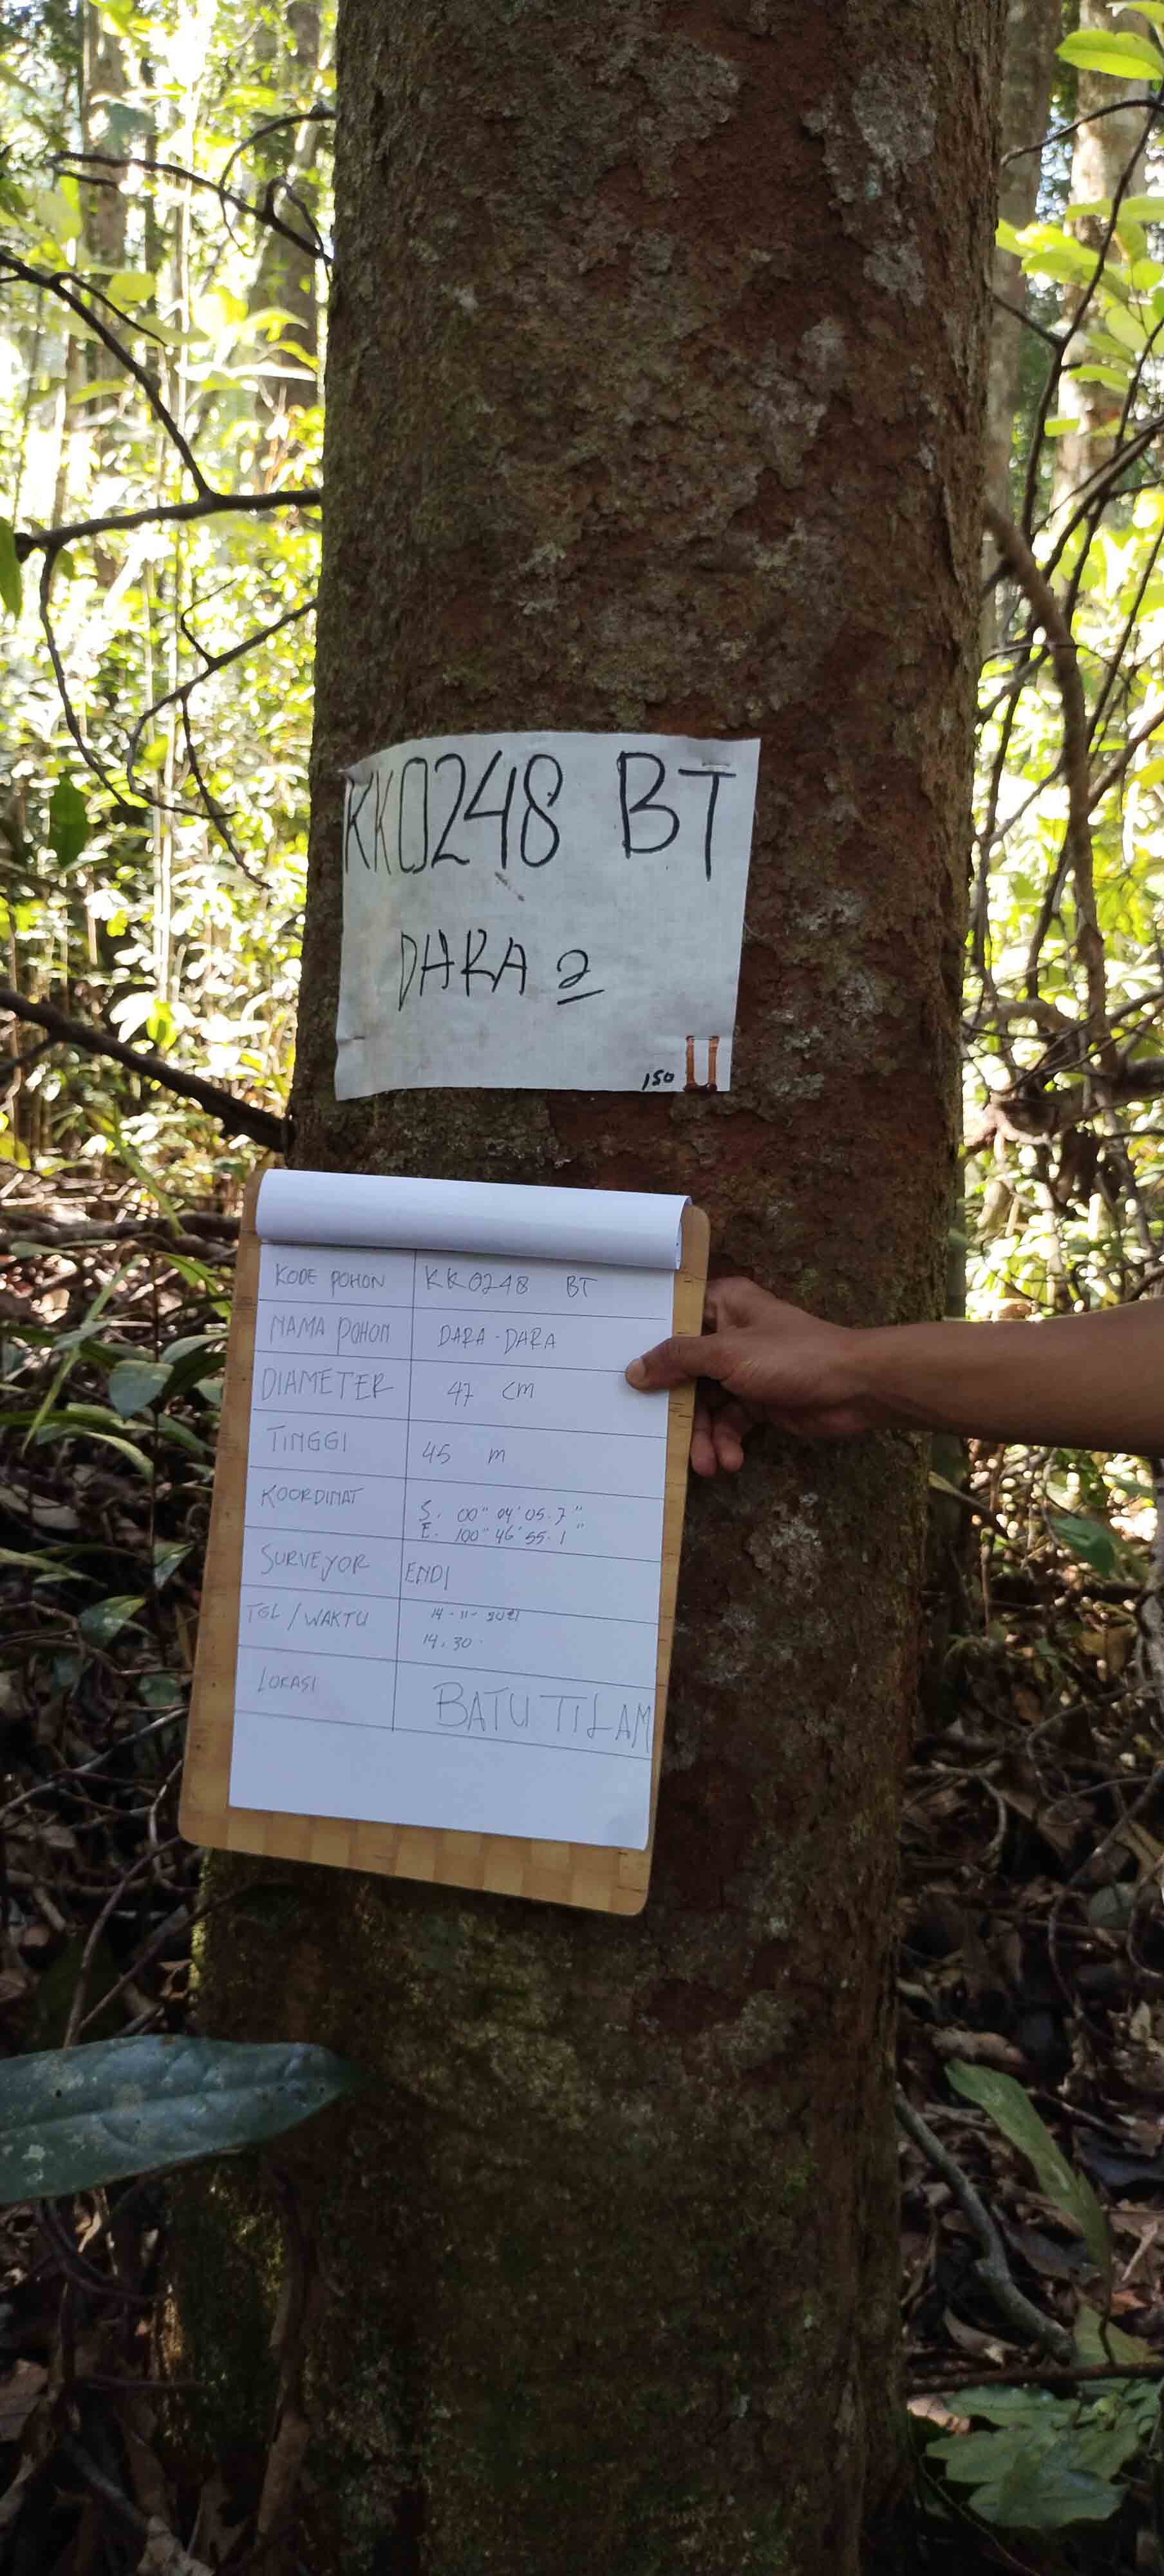 KK0248 BT
DARA 2
150
KODE POHON KK0248 BT
NAMA POHON DARA-DARA
DIAMETER 47 CM
TINGGI 45 m
KOORDINAT S. 00" 04' 05.7"
E. 100" 46' 55.1"
SURVEYOR ENDI
TGL/WAKTU 14-11-2021
14.30
LOKASI BATU TILAM